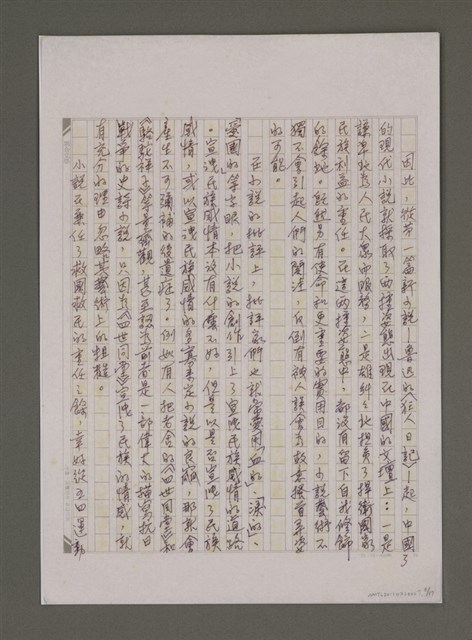 因此，從第一篇新小說——魯迅的《狂人日記》——起，中國
的現代小說就採取了兩種姿態出現在中國的文壇上：一是
謙卑地為人民大眾而服務，二是雄糾糾地担負了捍衛國家
民族利益的重任。在這兩種姿態中，都沒有留下自我修飾
的餘地。既然另有使命和更重要的實用目的，小說藝術不
獨不會引起人們的關注，反倒有被人誤會為故意摒棄
的可能。
在小說的批評上，批評家們也就常愛用「血的」、「淚的」、
愛國的等字眼，把小說的創作引上了宣洩民族感情的道路
。宣洩民族感情本沒有什麼不好，但是以是否宣洩了民族
感情，或以宣洩民族感情的多寡來定小說的良窳，那就會
產生不可彌補的後遺症了。例如有人把老舍的《四世同堂》和
《駱駝祥子》等量齊觀，甚至認為前者是一部偉大的描寫抗日
戰爭的史詩小說，只因為《四世同堂》宣洩了民族的情感，就
有充分的理由忽略其藝術上的粗糙。
小說在兼任了救國救民的重任之餘，幸好從五四運動